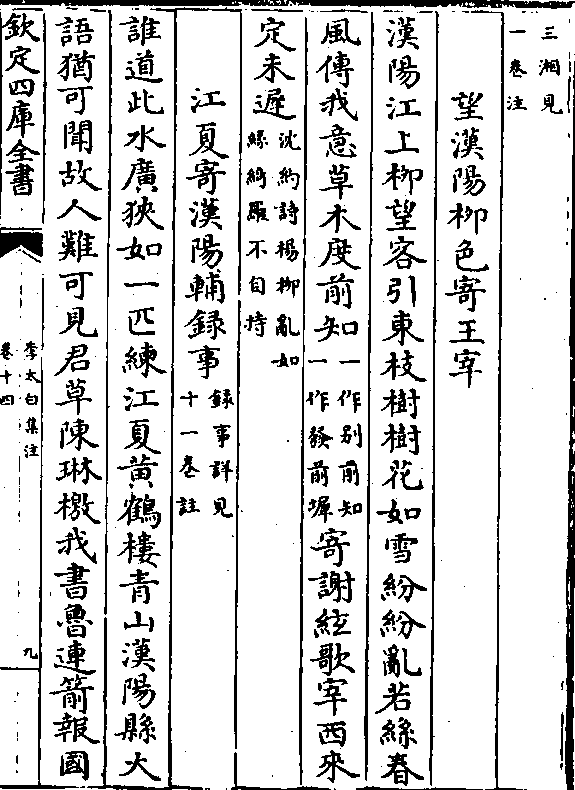 三湘見
一卷注
望漢陽柳色寄王宰
漢陽江上柳望客引東枝樹樹花如雪紛紛亂若絲春
風傳我意草木度前知一作別前知一作發前墀寄謝絃歌宰西來
定未遲沈約詩楊柳亂如絲綺羅不自持
江夏寄漢陽輔錄事錄事詳見十一卷註
誰道此水廣狹如一匹練江夏黃鶴樓青山漢陽縣大
語猶可聞故人難可見君草陳琳檄我書魯連箭報國
欽定四庫全書
李太白集注
卷十四
九